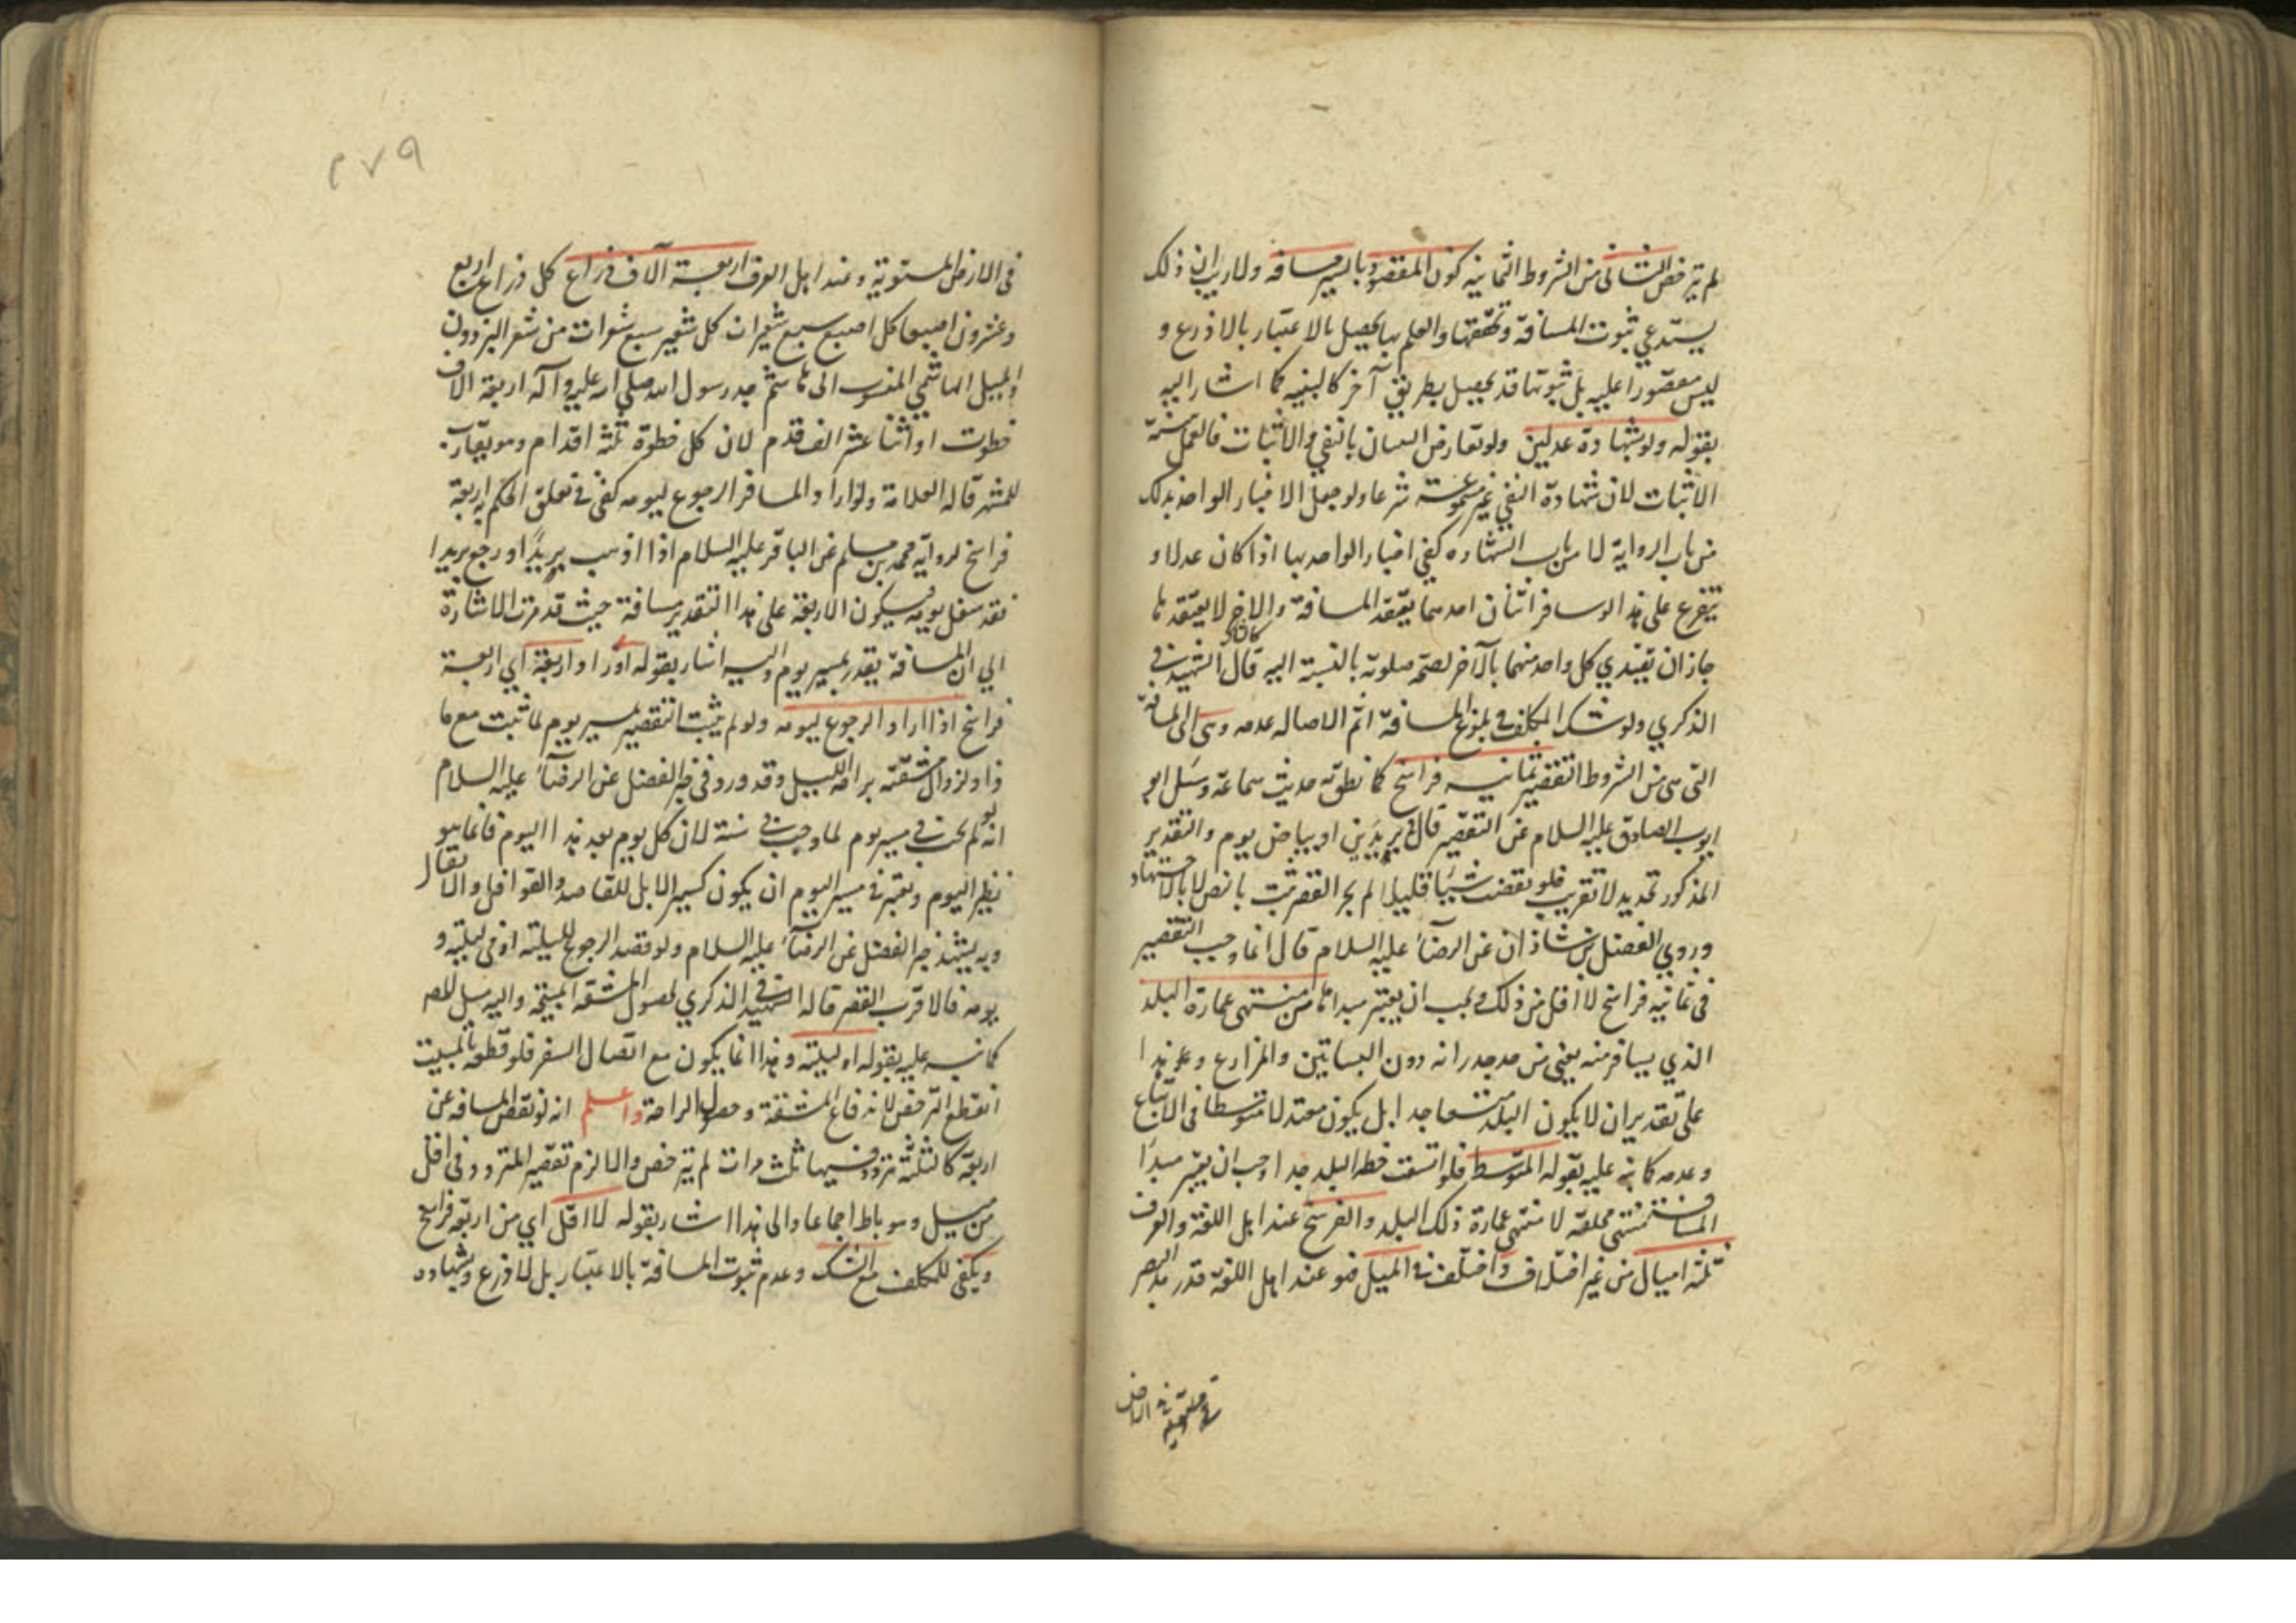 لم يترخص الثاني من الشروط الثمانية كون المقصود بالسير مسافة ولا ريب ان ذلك
يستدعي ثبوت المسافة وتحققها والعلم بها يحصل بالاعتبار بالاذرع و
ليس مقصورا عليه بل ثبوتها قد يحصل بطريق آخر كالبينة كما اشار اليه
بقوله ولو بشهادة عدلين ولو تعارض البينتان بالنفي والاثبات فالعمل ببينة
الاثبات لان شهادة النفي غير مسموعة شرعا ولو جعل الاخبار الواحد بذلك
من باب الرواية لا من باب الشهادة كفى اخبار الواحد بها اذا كان عدلا و
يتفرع على هذا لو سافر اثنان احدهما يعتقد المسافة والاخر لا يعتقدها
جاز ان يقتدي كل واحد منهما بالآخر لصحة صلوته بالنسبة اليه قال الشهيد في
الذكري ولو شك المكلف في بلوغ المسافة اتم لاصالة عدمه وهي اي المسافة
التي هي من الشروط التقصير ثمانية فراسخ كما نطق به حديث سماعة وسئل ابو
ايوب الصادق عليه السلام عن التقصير قال في بريدين او بياض يوم والتقدير
المذكور تحديد لا تقريب فلو نقصت شيئا قليلا لم يجز القصر ثبت بالنص لا بالاجتهاد
وروي الفضل بن شاذان عن الرضا عليه السلام قال انما وجب التقصير
في ثمانية فراسخ لا اقل من ذلك ويجب ان يعتبر مبداها من منتهى عمارة البلد
الذي يسافر منه يعني من حد جدرانه دون البساتين والمزارع وهذا
على تقدير ان لا يكون البلد متسعا جدا بل يكون معتدلا متوسطا في الاتساع
وعدمه كما نبه عليه بقوله المتوسط فلو اتسعت خطة البلد جدا وجب ان يعتبر مبدا
المسافة منتهى محلته لا منتهى عمارة ذلك البلد والفرسخ عند اهل اللغة والعرف
ثلثة اميال من غير اختلاف واختلف في الميل فهو عند اهل اللغة قدر مد البصر
في الارض
٢٧٩
في الارض المستوية وعند اهل العرف اربعة آلاف ذراع كل ذراع اربع
وعشرون اصبعا كل اصبع سبع شعيرات كل شعير سبع شعرات من شعر البرذون
والميل الهاشمي المنسوب الى هاشم جد رسول الله صلى الله عليه وآله اربعة الاف
خطوت او اثنا عشر الف قدم لان كل خطوة ثلثة اقدام وهو يقارب
للمشهر قاله العلامة ولو اراد المسافر الرجوع ليومه كفى في تعلق الحكم به اربعة
فراسخ لرواية محمد بن مسلم عن الباقر عليه السلام اذا اذهب بريدا ورجع بريدا
فقد شغل يومه فيكون الاربعة على هذا التقدير مسافة حيث قد مرت الاشارة
الي ان المسافة يقدر بمسير يوم واليه اشار بقوله او اربعة اي اربعة
فراسخ اذا اراد الرجوع ليومه ولو لم يثبت التقصير بمسير يوم لما ثبت مع ما
زاد لزوال مشقته براحة الليل وقد ورد في خبر الفضل عن الرضا عليه السلام
انه لو لم يجب في مسير يوم لما وجب في سنة لان كل يوم بعد هذا اليوم فانما هو
نظير اليوم ونعتبر في مسير اليوم ان يكون كسير الابل للقاصد والقوافل والاثقال
وبه يشهد خبر الفضل عن الرضا عليه السلام ولو قصد الرجوع لليلته او في ليلته و
يومه فالاقرب القصر قاله الشهيد في الذكري لحصول المشقة المبيحة واليه ميل المص
كما نبه عليه بقوله او ليلته وهذا انما يكون مع اتصال السفر فلو قطعه بالمبيت
انقطع الترخص لاندفاع المشقة وحصول الراحة واعلم انه لو نقص المسافه عن
اربعة كالثلثة يتردد فيها ثلث مرات لم يترخص والا لزم تقصير المتردد في اقل
من ميل وهو باطل اجماعا والى هذا اشار بقوله لا اقل اي من اربعة فراسخ
ويكفى للمكلف مع الشك وعدم ثبوت المسافة بالاعتبار بل لا ذرع وشهاده